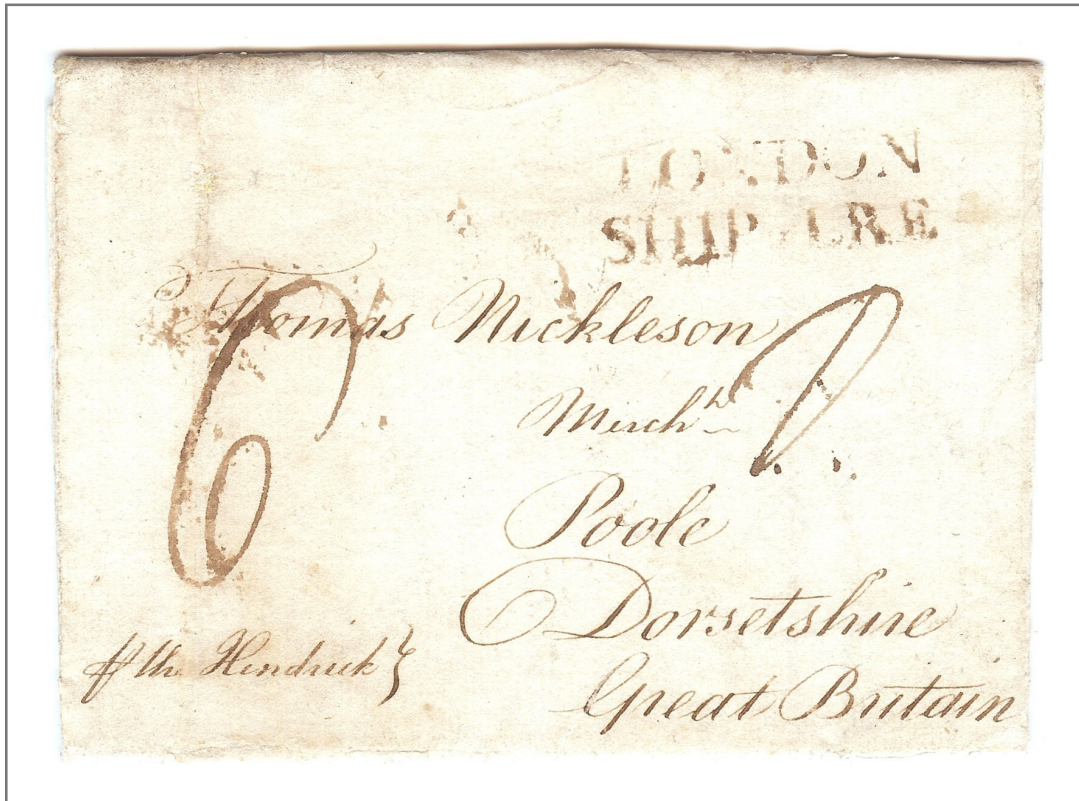 LONDON
SHIP LRE
6
Thomas Nickleson
Merch.t
Poole
Dorsetshire
Great Britain
the Hendrick